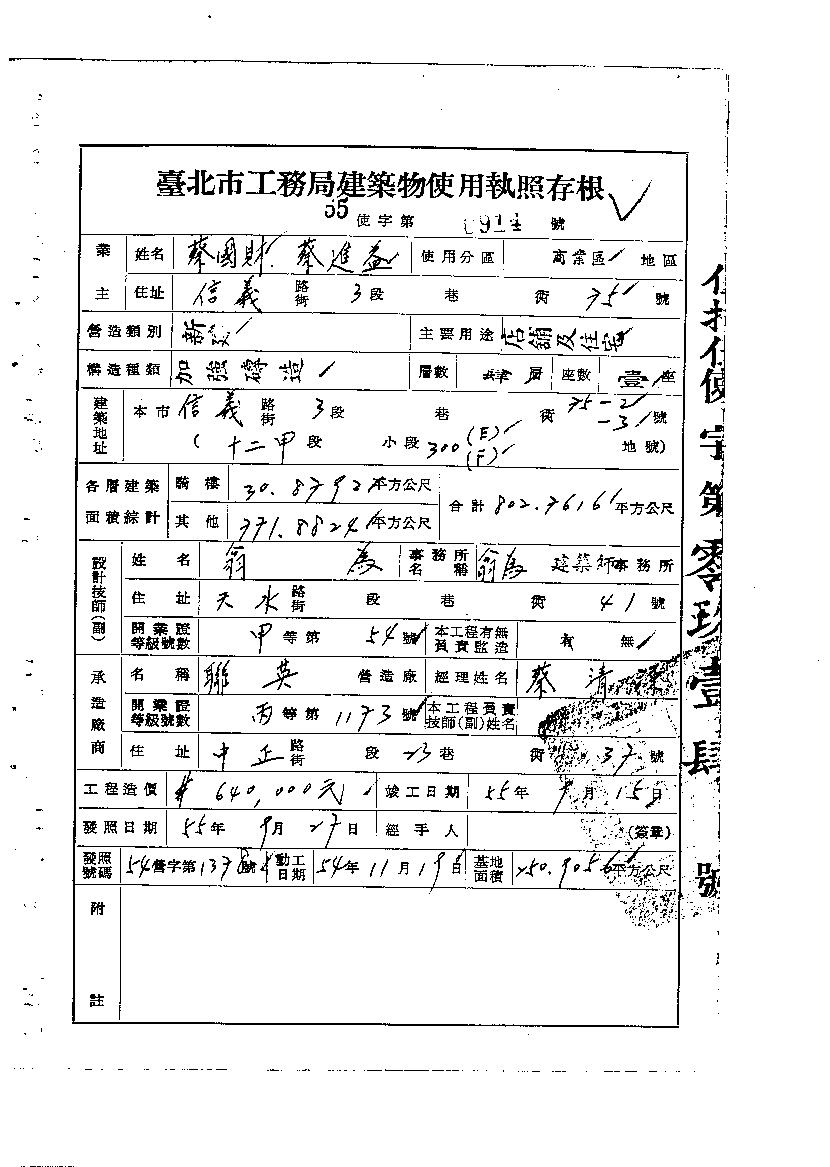 臺北市工務局建築物使用執照存根
55使字第0914號
業主 姓名 蔡國財 蔡進益 使用分區 商業區 地區
住址 信義 路街 3段 巷 衖 75號
營造類別 新 主要用途 店舖及住宅
構造種類 加強磚造 層數 層 座數 壹座
建築地址 本市 信義 路街 3段 巷 衖 75-2 -3號
(十二甲段 小段 300 (E) (F) 地號)
各層建築面積綜計 騎樓 30.8792平方公尺 合計 802.7616平方公尺
其他 771.8824平方公尺
設計技師(副) 姓名 翁為 事務所名稱 翁為建築師事務所
住址 天水 路街 段 巷 衖 41號
開業證等級號數 甲等第54號 本工程有無負責監造 有 無
承造廠商 名稱 聯英 營造廠 經理姓名 蔡清
開業證等級號數 丙等第1173號 本工程負責技師(副)姓名
住址 中正 路街 段 巷 衖 37號
工程造價 640,000元 竣工日期 55年9月15日
發照日期 55年9月27日 經手人 (簽章)
發照號碼 54營字第1378號 動工日期 54年11月19日 基地面積 250.9056平方公尺
附註
使字第零玖壹肆號